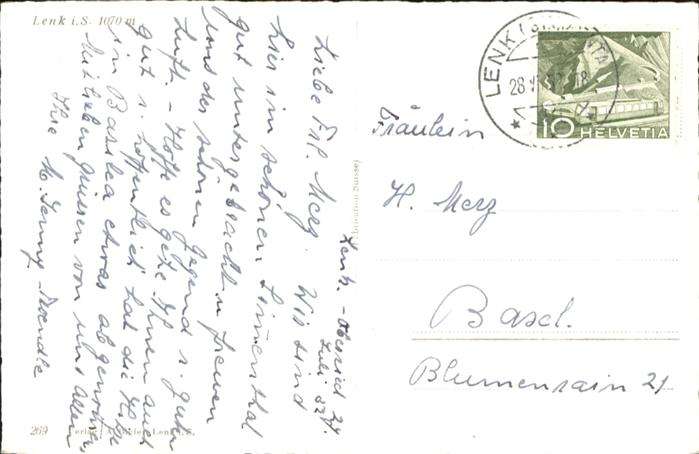 Lenk i.S. 1070 m
Lenk. - Oberried 27.
Juli 52.
Liebe Frl. Merz! Wir sind
hier im schönen Simmenthal
gut untergebracht u. freuen
uns der schönen Gegend u. guten
Luft. - Hoffe es gehe Ihnen auch
gut u. hoffentlich hat die Hitze
in Basilea etwas abgenommen.
Mit lieben Grüssen von uns Allen
Ihre M. Jenny-
269
LENK (SIMMENTAL)
28. 52-18
10 HELVETIA
Fräulein
H. Merz
Basel.
Blumenrain 21